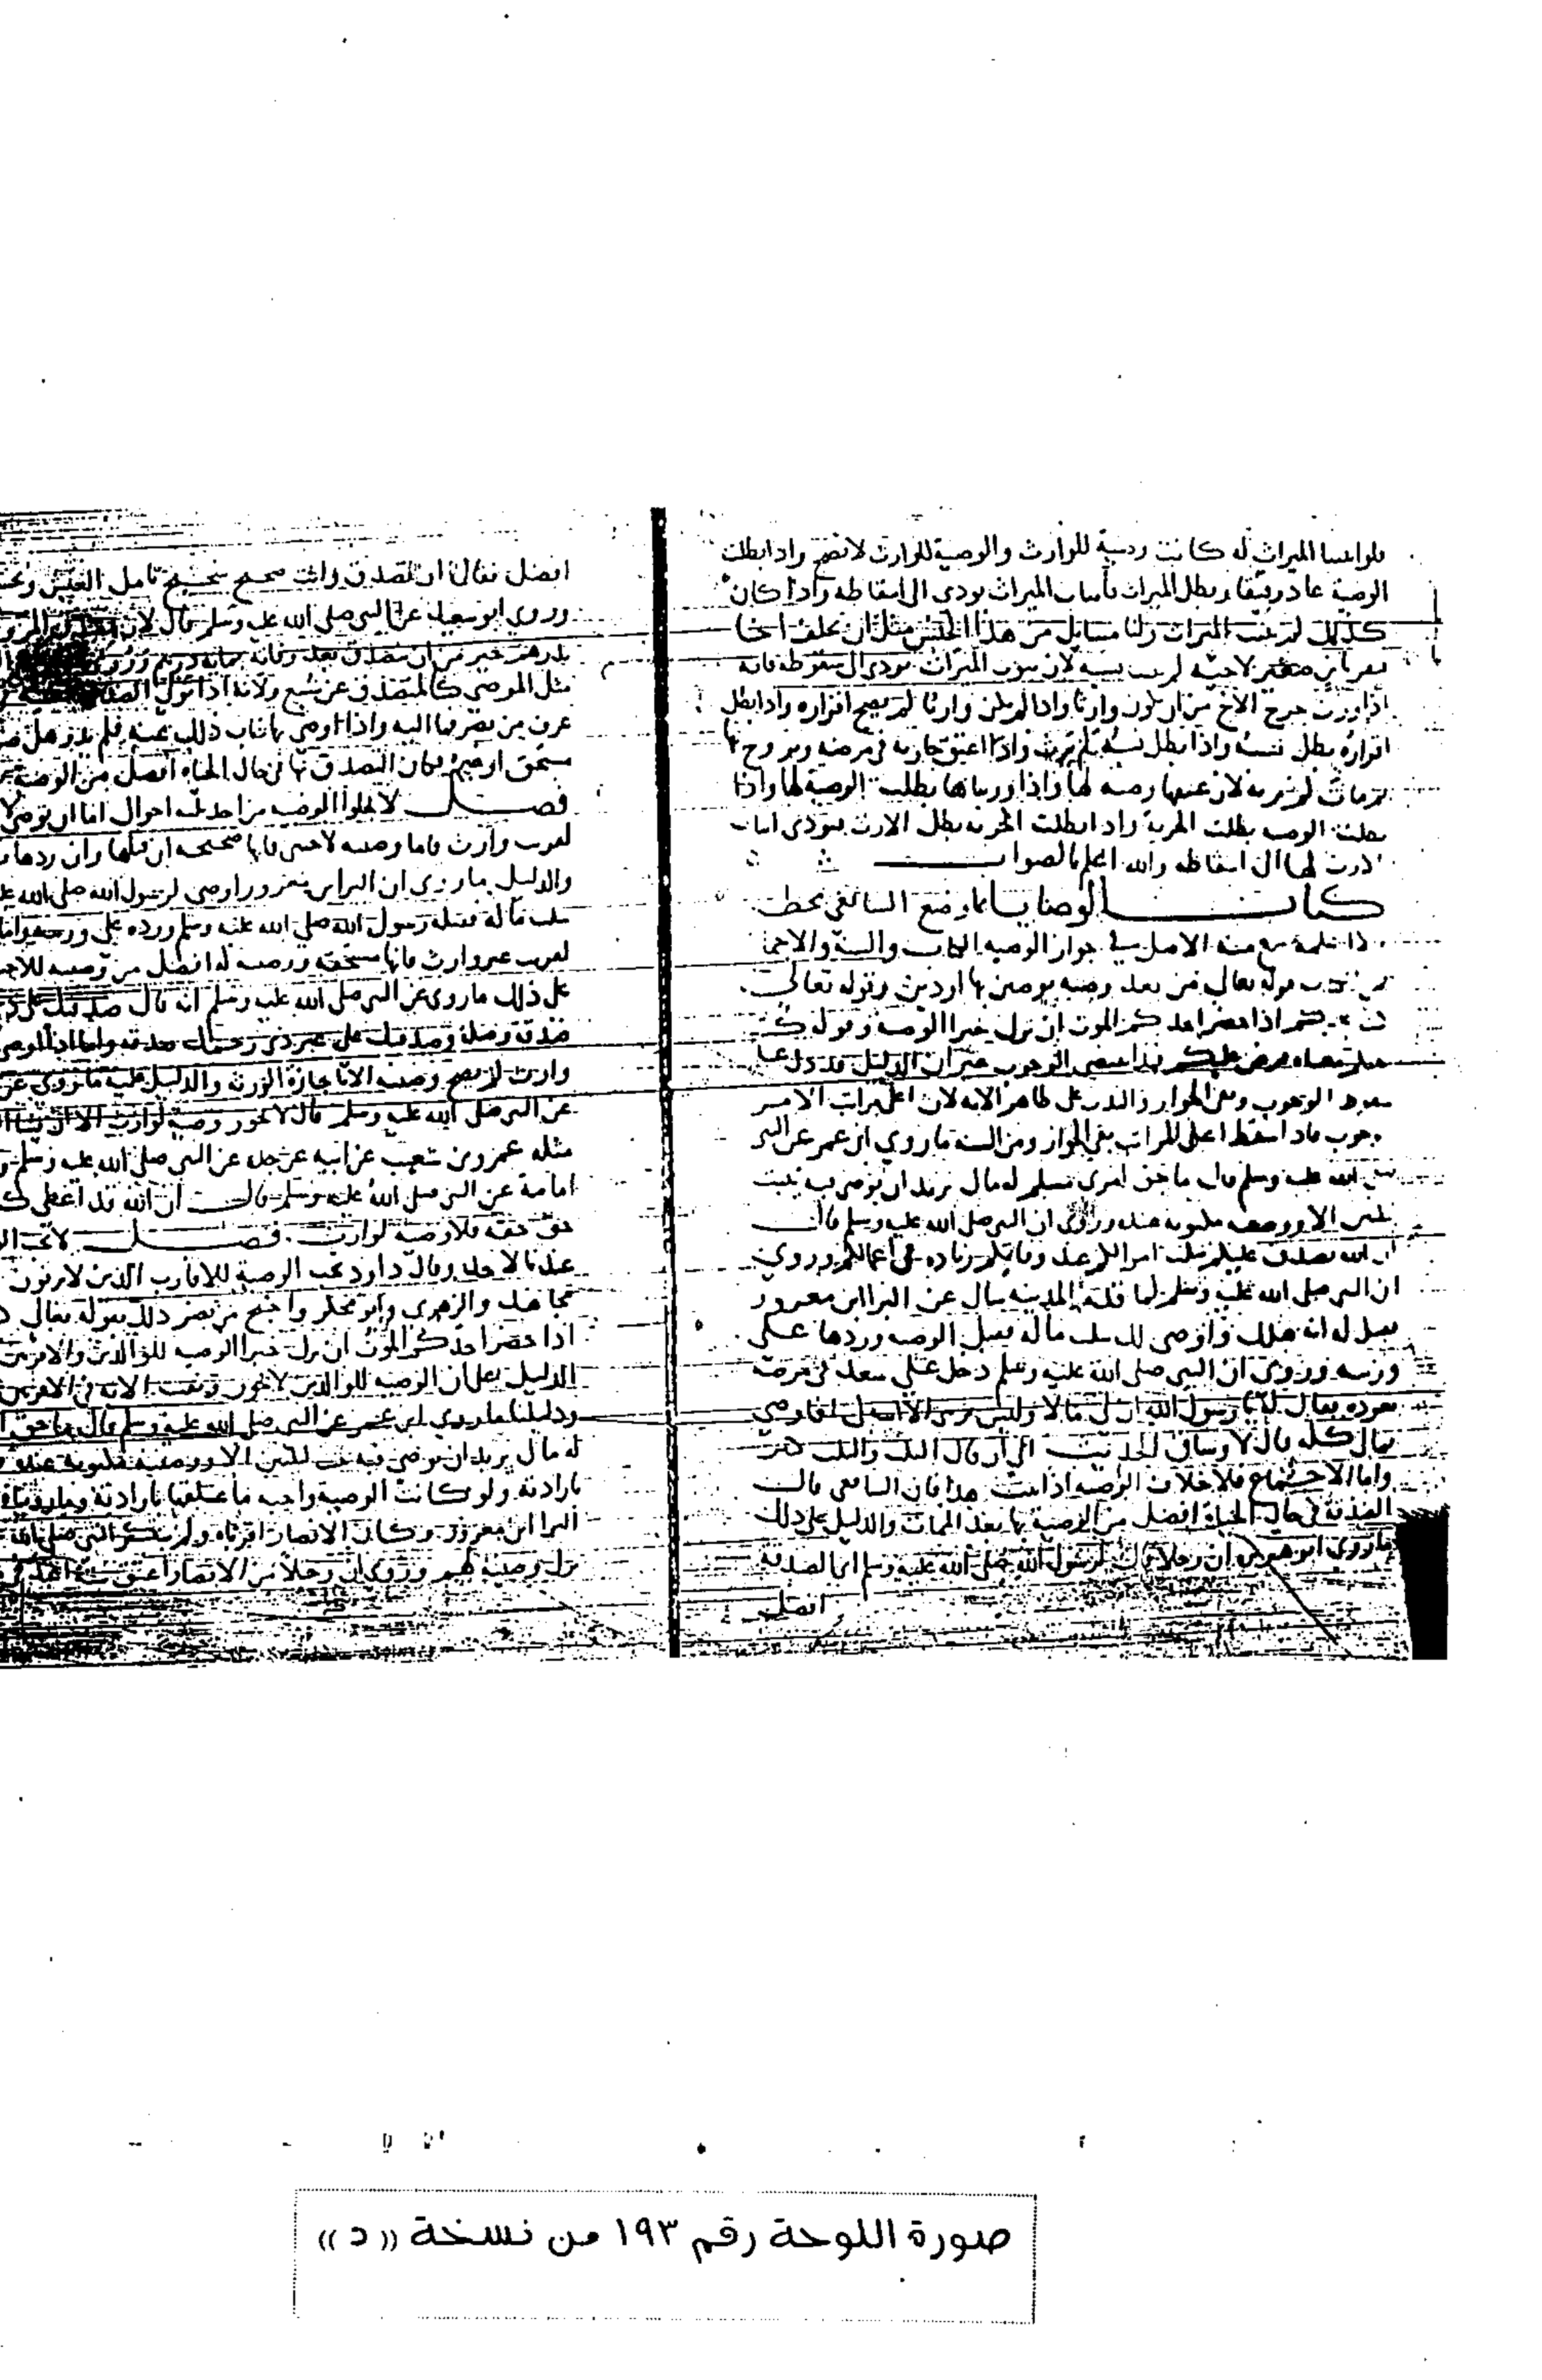 فلو اثبتنا الميراث له كانت وصية للوارث والوصية للوارث لا تصح واذا بطلت
الوصية عاد رقيقا وبطل الميراث فاثبات الميراث يودى الى اسقاطه واذا كان
كذلك لم يثبت الميراث ولنا مسايل من هذا الجنس مثل ان يخلف اخا
لان ثبوت الميراث يودى الى سقوطه فانه
اذا ورث خرج الاخ من ان يكون وارثا واذا لم يكن وارثا لم يصح اقراره واذا بطل
اقراره بطل نسبه واذا بطل نسبه لم يرث واذا اعتق جارية فى مرضه وتزوج بها
ثم مات لم ترثه لان عتقها وصية لها واذا ورثناها بطلت الوصية لها واذا
بطلت الوصية بطلت الحرية واذا بطلت الحرية بطل الارث فيودى اثبات
الارث لها الى اسقاطه والله اعلم بالصواب
كتاب الوصايا مما وضع الشافعى بخطه
الاصل فى جواز الوصية الكتاب والسنة والاجماع
قوله تعالى من بعد وصية يوصين بها او دين وقوله تعالى
اذا حضر احدكم الموت ان ترك خيرا الوصية وقوله كتب
معناه فرض عليكم هذا يقتضى الوجوب غير ان الدليل قد دل على
سقوط الوجوب وبقى الجواز والندب على ظاهر الاية لان اعلى مراتب الامر
الوجوب فاذا سقط اعلى المراتب بقى الجواز ومن السنة ما روى ابن عمر عن النبى
صلى الله عليه وسلم قال ما حق امرى مسلم له مال يريد ان يوصى فيه يبيت
ليلتين الا ووصيته مكتوبة عنده وروى ان النبى صلى الله عليه وسلم قال
ان الله تصدق عليكم بثلث اموالكم عند وفاتكم زيادة فى اعمالكم وروى
ان النبى صلى الله عليه وسلم لما قدم المدينة سال عن البرا ابن معرور
فقيل له انه هلك واوصى لك بثلث ماله فقبل الوصية وردها على
ورثته وروى ان النبى صلى الله عليه وسلم دخل على سعد فى مرضه
يعوده فقال له يا رسول الله ان لى مالا وليس يرثنى الا افاوصى
بمالى كله قال لا وساق الحديث الى ان قال الثلث والثلث كثير
واما الاجماع فلا خلاف الوصية اذا ثبت هذا فان الشافعى قال
الصدقة فى حال الحياة افضل من الوصية بها بعد الممات والدليل على ذلك
ما روى ابو هريرة ان رجلا قال لرسول الله صلى الله عليه وسلم اى الصدقة
افضل
افضل فقال ان تصدق وانت صحيح شحيح تامل العيش وتخشى
وروى ابو سعيد عن النبى صلى الله عليه وسلم قال لان
بدرهم خير من ان يتصدق بعد وفاته بمائة درهم وروى
مثل الموصى كالمتصدق عن شبع ولانه اذا
عرف من يصرفها اليه واذا اوصى بها ناب ذلك عنه فلم يدر هل
مستحق او غيره فكان التصدق بها فى حال الحياة افضل من الوصية
فصل لا يخلوا الوصية من احد ثلثة احوال اما ان يوصى
لغريب وارث فاما وصيته لاجنبى فانها صحيحة ان قبلها وان ردها
والدليل ما روى ان البرا ابن معرور اوصى لرسول الله صلى الله عليه
بثلث ماله فقبله رسول الله صلى الله عليه وسلم ورده على ورثته واما
لقريب غير وارث فانها مستحقة ووصيته له افضل من وصيته للاجنبى
على ذلك ما روى عن النبى صلى الله عليه وسلم انه قال صدقتك على
صدقة وصلة وصدقتك على غير ذى رحمك صدقة واما اذا اوصى
وارث لم تصح وصيته الا باجازة الورثة والدليل عليه ما روى عن
عن النبى صلى الله عليه وسلم قال لا تجوز وصية لوارث الا ان يشا
مثله عمرو بن شعيب عن ابيه عن جده عن النبى صلى الله عليه وسلم
امامة عن النبى صلى الله عليه وسلم قال ان الله قد اعطى كل
حق حقه فلا وصية لوارث فصل لا تجب
عندنا لاحد وقال داود تجب الوصية للاقارب الذين لا يرثون
مجاهد والزهرى وابو مجلز واحتج من نصر ذلك بقوله تعالى
اذا حضر احدكم الموت ان ترك خيرا الوصية للوالدين والاقربين
الدليل على ان الوصية للوالدين لا تجوز وبقيت الاية فى الاقربين
ودليلنا ما روى ابن عمر عن النبى صلى الله عليه وسلم قال ما حق
له مال يريد ان يوصى فيه يبيت ليلتين الا ووصيته مكتوبة عنده
بارادته ولو كانت الوصية واجبة ما علقها بارادته
البرا ابن معرور وكان الانصار اقرباه ولم ينكر النبى صلى الله
ترك وصيته لهم وروى ان رجلا من الانصار اعتق ستة اعبد
صورة اللوحة رقم ١٩٣ من نسخة ((د))